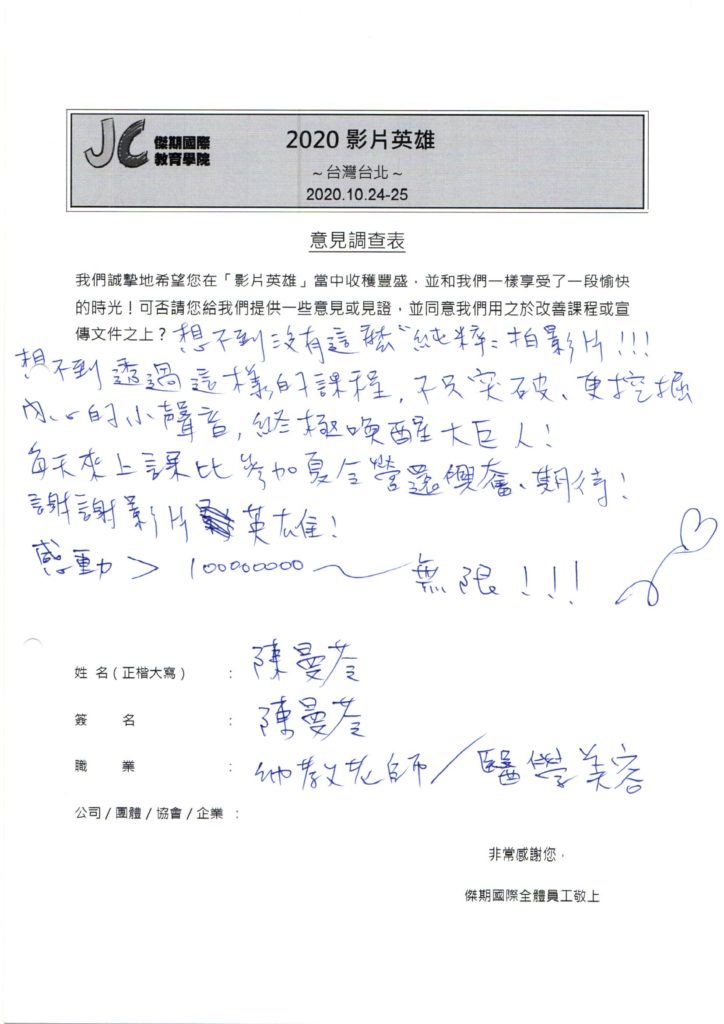 JC 傑期國際
教育學院
2020 影片英雄
~台灣台北~
2020.10.24-25
意見調查表
我們誠摯地希望您在「影片英雄」當中收穫豐盛，並和我們一樣享受了一段愉快
的時光！可否請您給我們提供一些意見或見證，並同意我們用之於改善課程或宣
傳文件之上？
想不到沒有這麼“純粹”拍影片!!!
想不到透過這樣的課程，不只突破、更挖掘
內心的小聲音，終極喚醒大巨人!
每天來上課比參加夏令營還興奮、期待!
謝謝影片英雄!
感動 > 100000000 ~ 無限!!!
姓 名(正楷大寫) : 陳曼苓
簽 名 : 陳曼苓
職 業 : 幼教老師/醫學美容
公司/團體/協會/企業 :
非常感謝您，
傑期國際全體員工敬上